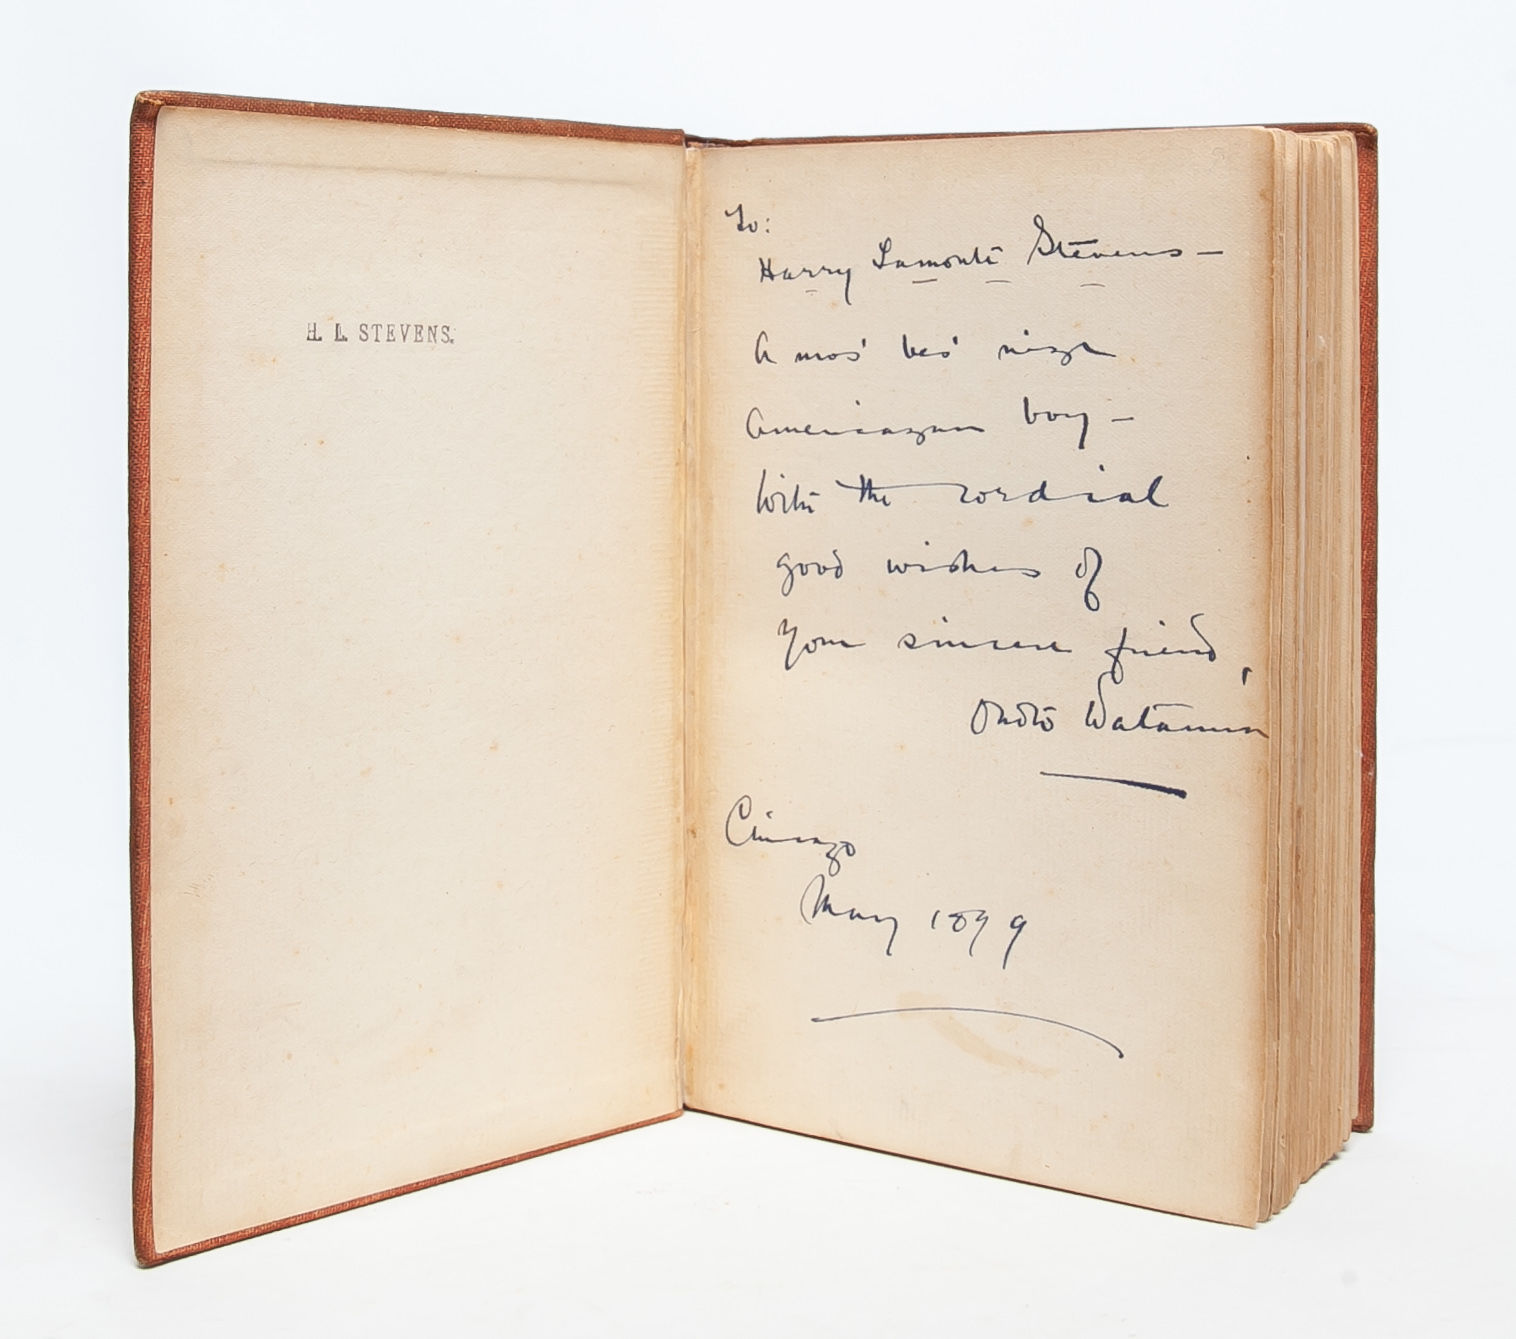 H. L. STEVENS.
To:
Harry Lamonte Stevens —
A mos' bes' nize
Americazan boy —
With the cordial
good wishes of
your sincere friend,
Onoto Watanna
Chicago
May 1899